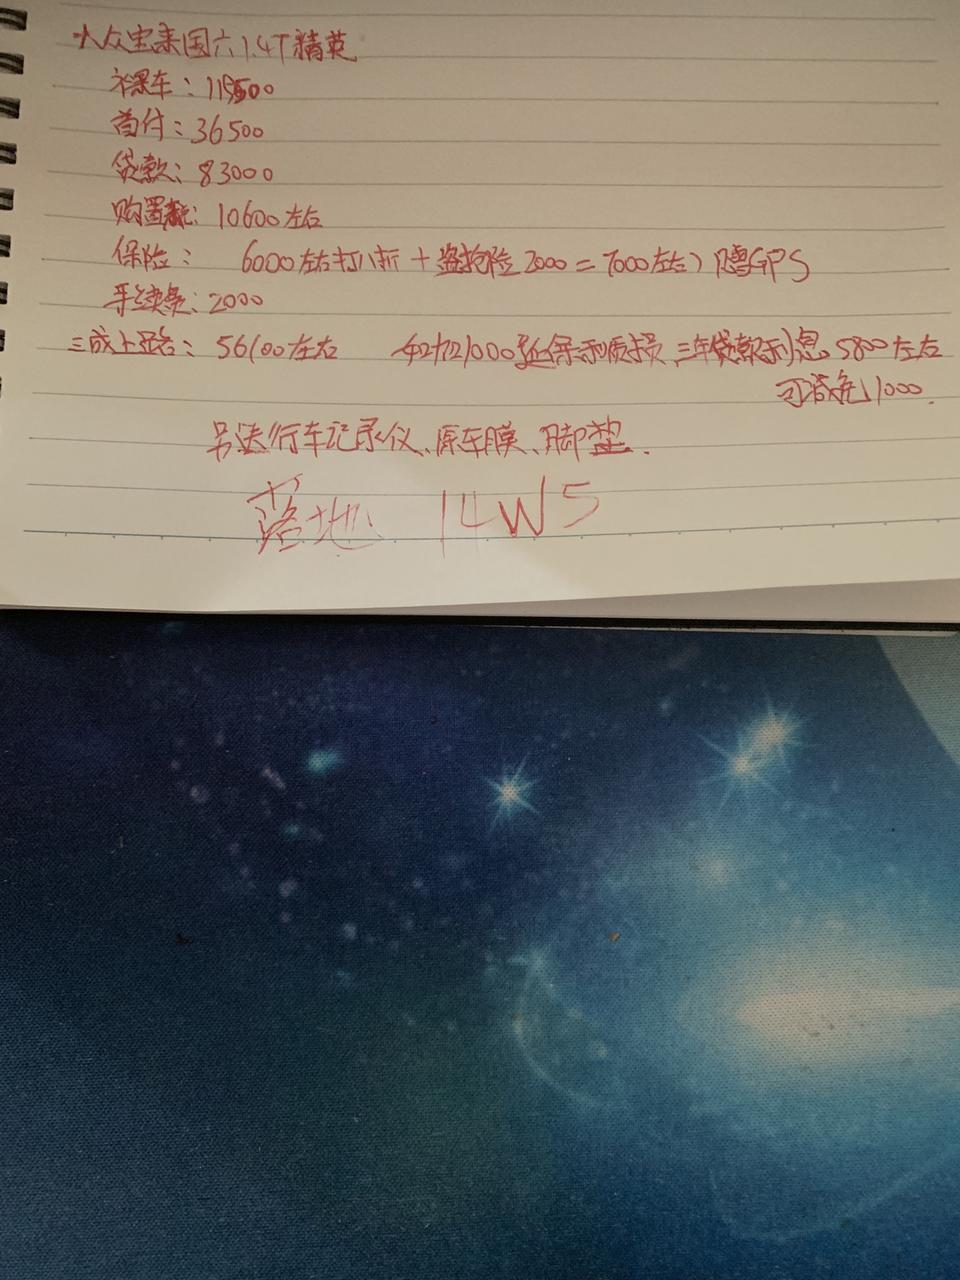 大众宝来国六1.4T精英
裸车：119500
首付：36500
贷款：83000
购置税：10600左右
保险： 6000左右打八折+盗抢险2000=7000左右）赠GPS
手续费：2000
三成上路：56100左右 延保和质损，三年贷款利息5800左右
可减免1000.
另送行车记录仪、原车膜、脚垫.
落地 14W5